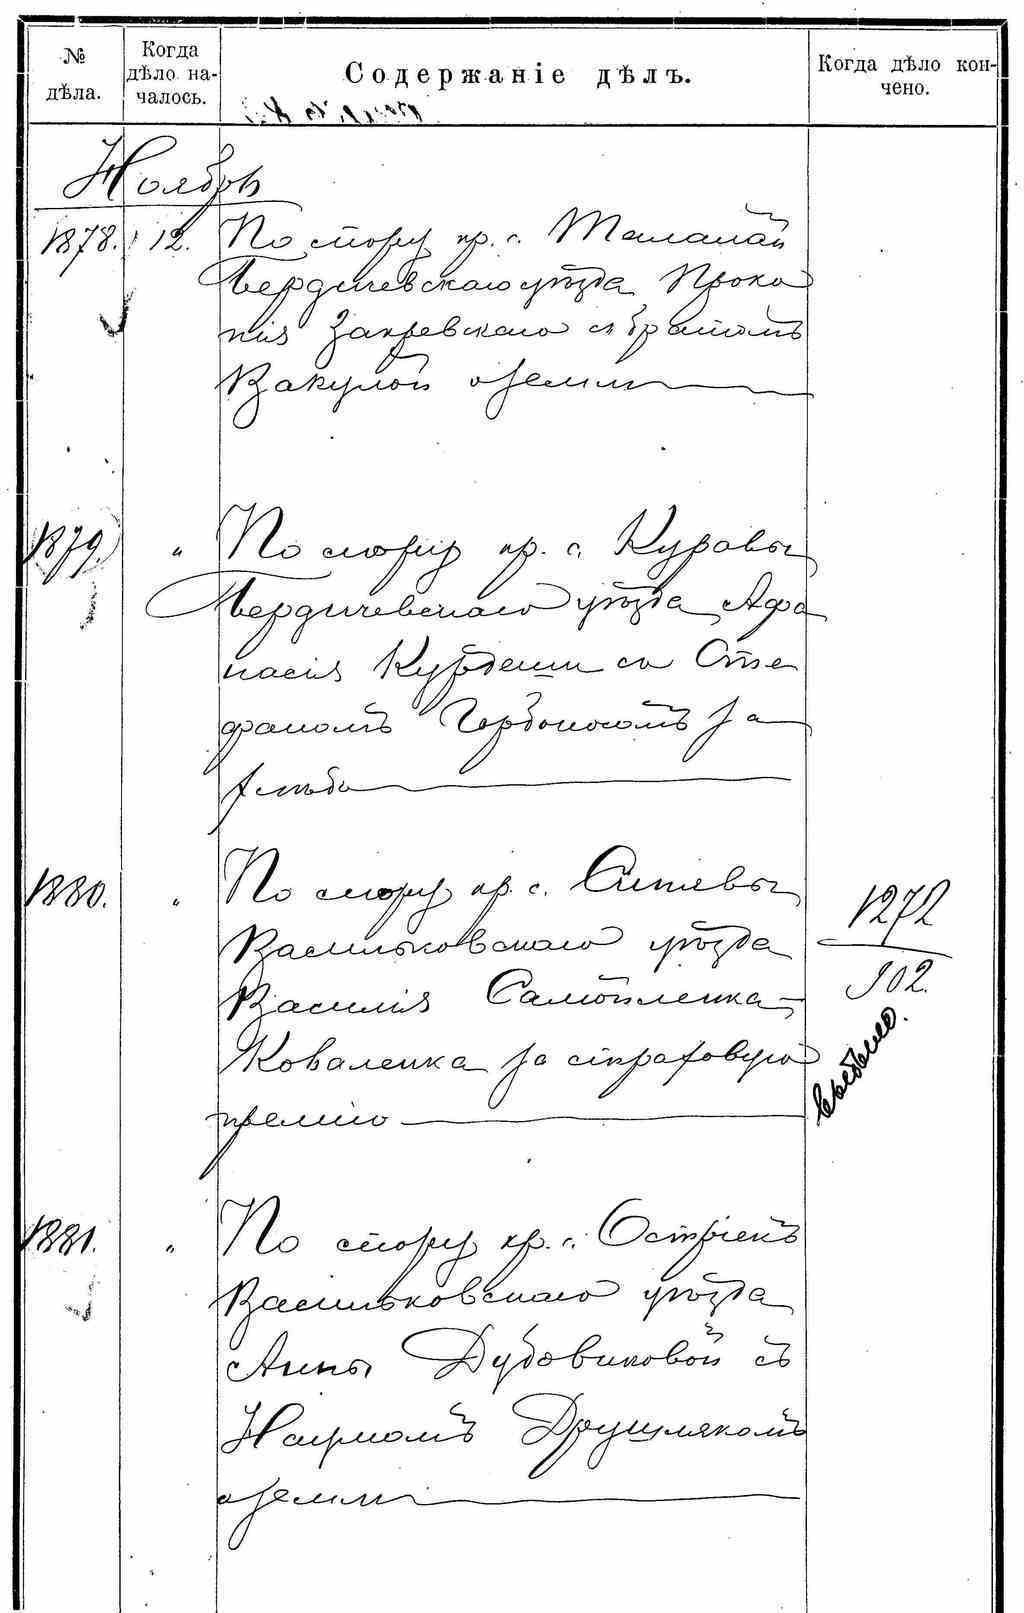 № дѣла.
Когда дѣло началось.
Содержаніе дѣлъ.
Когда дѣло кончено.
Ноябрь
1878. 12. По спору кр. с. Маламай
Бердичевскаго уѣзда Проко
пія Закревскаго съ братомъ
Вакулой о земли
1879. " По спору кр. с. Куравы
Бердичевскаго уѣзда Афа
насія Курдеши со Сте
фаномъ за
1880. " По спору кр. с. Антевы
Васильковскаго уѣзда
Василія Самойленка
Коваленка за страховую
премію
1272
902.
выбыло.
1881. " По спору кр. с. Острiекъ
Васильковскаго уѣзда
Анны Дубовиковой съ
Наумомъ Друшлякомъ
о земли